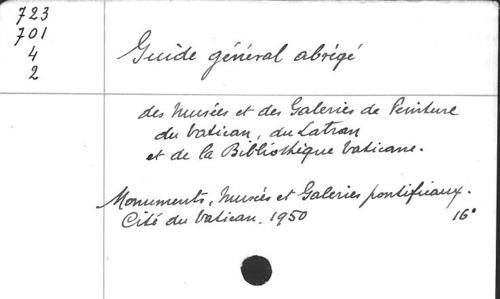 723
701
4
2
Guide général abrégé
des Musées et des Galeries de Peinture
du Vatican, du Latran
et de la Bibliothèque Vaticane.
Monuments, Musées et Galeries pontificaux.
Cité du Vatican, 1950 16°